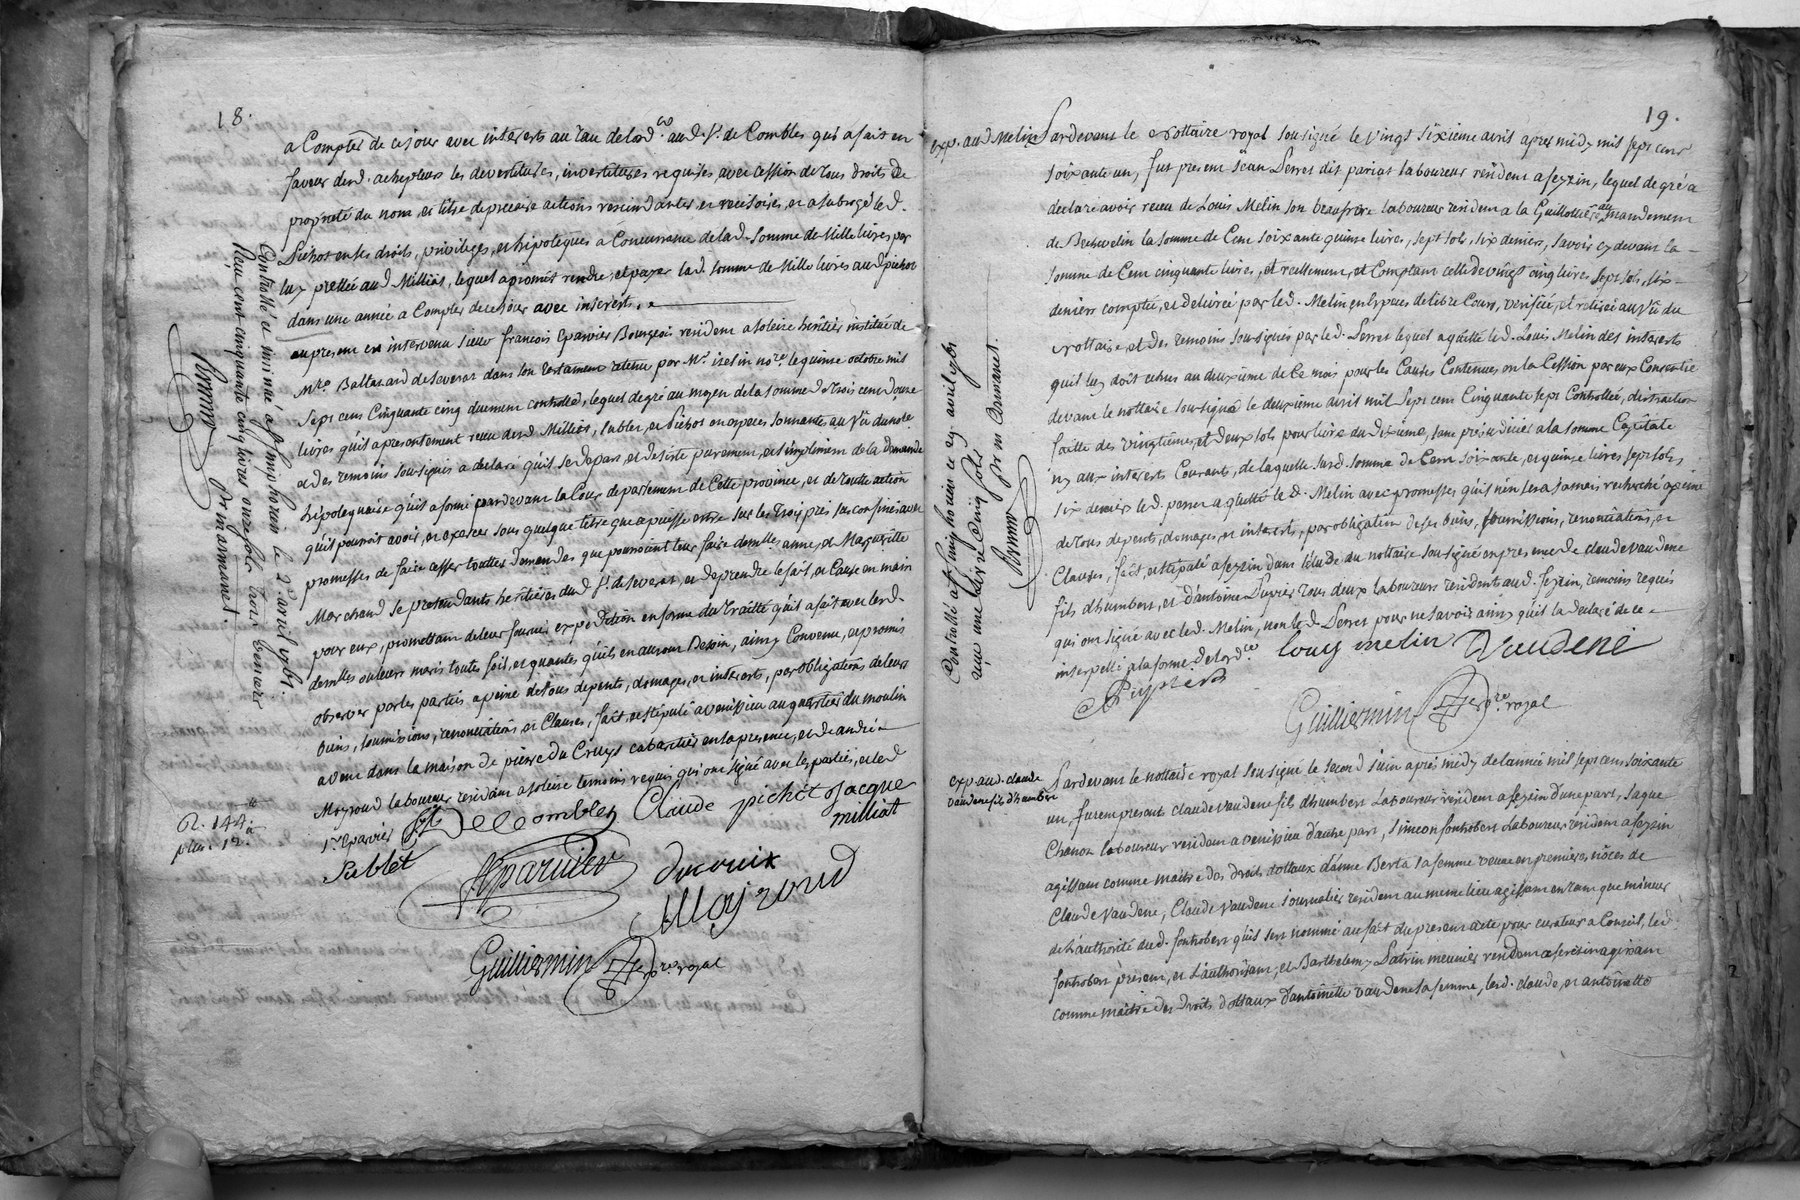 18.
a Compter de ce jour avec interests au taux de lord.ce aud. Sr. de Combles qui a fait en
faveur desd. achepteurs les devertitures, invertitures requises, avec cession de tous droits de
proprieté du nom, et titre de precaire actions rescindantes et rescisoires, et a subrogé led.
Pichot en ses droits, privileges, et hipoteques a Concurrance de lad. somme de Mille livres par
luy prettée aud Milliat, lequel a promet rendre, et payer lad somme de Mille livres aud pichot
dans une année a Compter de ce jour avec interest.
au present est intervenu sieur françois Eparvier Bourgeois resident a soleize heritier institué de
Mre. Baltazard de severat dans son testament retenu par Me. iselin nore. le quinse octobre mil
sept cens Cinquante cinq duement controllé, lequel de gré au moyen de la somme de trois cens douse
livres qu'il a presentement receu desd Milliat, sublet, et Pichot en especes sonnantes au Vû du nore.
et des temoins soussignés a declaré qu'il se depart, et desiste purement, et simplement de la demande
hipotequaire qu'il a formé pardevant la Cour de parlement de Cette province, et de toute action
qu'il pourroit avoir, et exercer sous quelque titre que ce puisse estre sur les trois prés sus confinés avec
promesses de faire cesser touttes demandes que pourroient leur faire demlles. anne, et Margueritte
Marchand se pretendants heritieres dud Sr. de severat, et de prendre le fait, et Cause en main
pour eux, promettant de leur fournir expedition en forme du traitté qu'il a fait avec lesd.
demlles ou leurs maris toutes fois, et quantes qu'ils en auront Besoin, ainsy Convenu, et promis
observer par les parties a peine de tous depents, domages, et interests, par obligations de leurs
biens, soumissions, renonciations, et Clauses, fait, et stipulé a venissieu au quartier du moulin
a vent dans la maison de pierre du Cruys cabartier en sa presence, et de andré
Moyroud laboureur resident a soleize temoins requis qui ont signé avec les parties, et led
sr. Eparvier
De Combles Claude pichot Jacque
milliat
Sublet
Eparvier ducruix
Moyroud
Guilliermin nore. royal
Controllé et insinué a st simphorien le 2e. avril 1761
Reçu cent cinquante cinq livres onze sols trois deniers
Bernard Dr in armanet.
R. 144.
plus. 12.
19.
exp. aud Melin
Pardevant le Nottaire royal soussigné le vingt sixieme avril apres midy mil sept cent
soixante un, fut present Jean Perret dit pariat laboureur resident a feyzin, lequel de gré a
declaré avoir receu de Louis Melin son beaufrere laboureur resident a la Guillottiere au mandement
de Bechevelin la somme de Cent soixante quinse livres, sept sols, six deniers, savoir cy devant la
somme de Cent cinquante livres, et reellement, et Comptant celle de vingt cinq livres sept sols, six
deniers compté, et delivrée par led. Melin en Especes de libre Cours, verifiée, et retirée au Vû du
Nottaire et des temoins soussignés par led. Perret lequel a quitté led. Louis Melin des interests
qu'il luy doit echus au deuxieme de Ce mois pour les Causes Contenues, en la Cession par eux Consentie
devant le nottaire soussigné le deuxieme avril mil sept cent Cinquante sept Controllée, distraction
faitte des vingtiemes, et deux sols pour livre du dixieme, sans préjudicier a la somme Capitale
ny aux interests Courants, de laquelle susd. somme de Cent soixante, et quinse livres sept sols,
six deniers led. perret a quitté led. Melin avec promesses qu'il n'en sera jamais recherché a peine
de tous depents, domages, et interests, par obligation de ses biens, soumissions, renonciations, et
Clauses, fait, et stipulé a feyzin dans l'étude du nottaire soussigné en presence de claude vaudene
fils d'humbert, et d'antoine Dupier tous deux laboureurs residents aud. feyzin, temoins requis
qui ont signé avec led. Melin, non led. Perret pour ne savoir ainsy qu'il la declaré de ce
interpellé a la forme de lord.ce
louy melin Vaudene
A Dupier
Guilliermin nore. royal
Controllé a st simphorien ce 29 avril 1761
reçu une livre cinq sols
Bernard pr. m armanet.
exp. aud. claude
vaudene fils d'humbert
Pardevant le nottaire royal soussigné le second Juin apres midy de l'année mil sept cens soixante
un, furent presant claude vaudene fils d'humbert laboureur resident a feyzin d'une part, Jaque
Chanon laboureur resident a venissieu d'autre part, simeon fontrobert laboureur resident a feyzin
agissant comme maitre des droits dottaux d'anne Berta sa femme veuve en premieres nôces de
Claude vaudene, Claude vaudene journalier resident au meme lieu agissant en tant que mineur
de l'authorité dud. fontrobert qu'il sera nommé au fait du present acte pour curateur a Conseil, led
fontrobert present, et l'authorisant, et Barthelemy Patrin meunier resident a serezin agissant
comme maitre des droits dottaux d'antoinette vaudene sa femme, lesd. claude, et antoinette